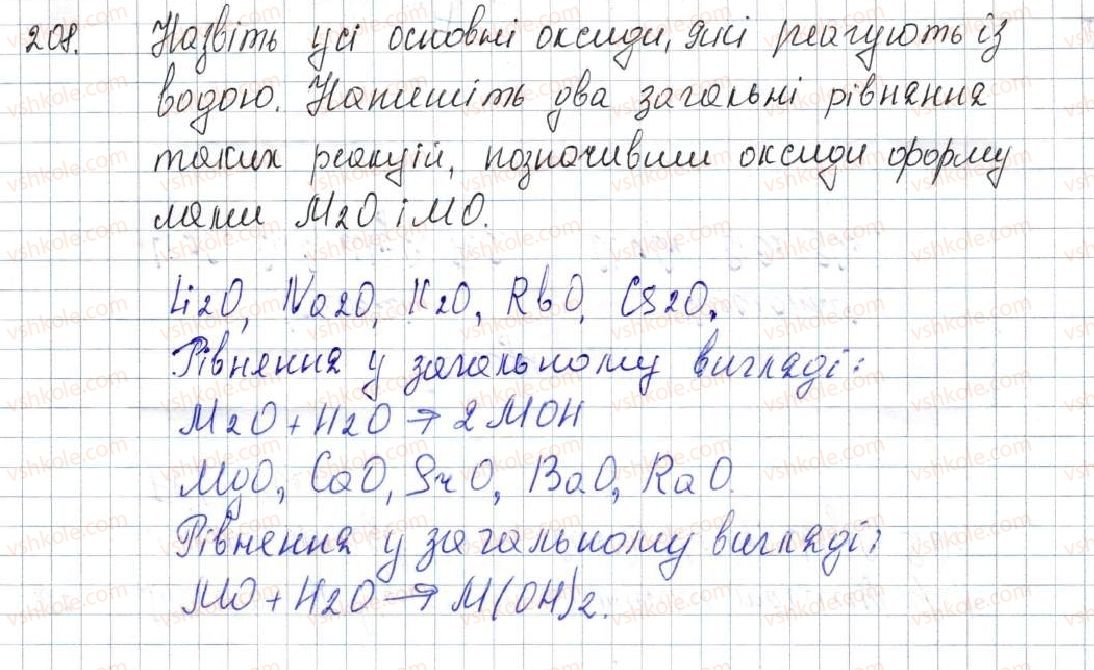 208. Назвіть усі основні оксиди, які реагують із
водою. Напишіть два загальні рівняння
таких реакцій, позначивши оксиди форму
лами M2O і MO.
Li2O, Na2O, K2O, RbO, Cs2O.
Рівняння у загальному вигляді:
M2O + H2O → 2MOH
MgO, CaO, SrO, BaO, RaO.
Рівняння у загальному вигляді:
MO + H2O → M(OH)2.